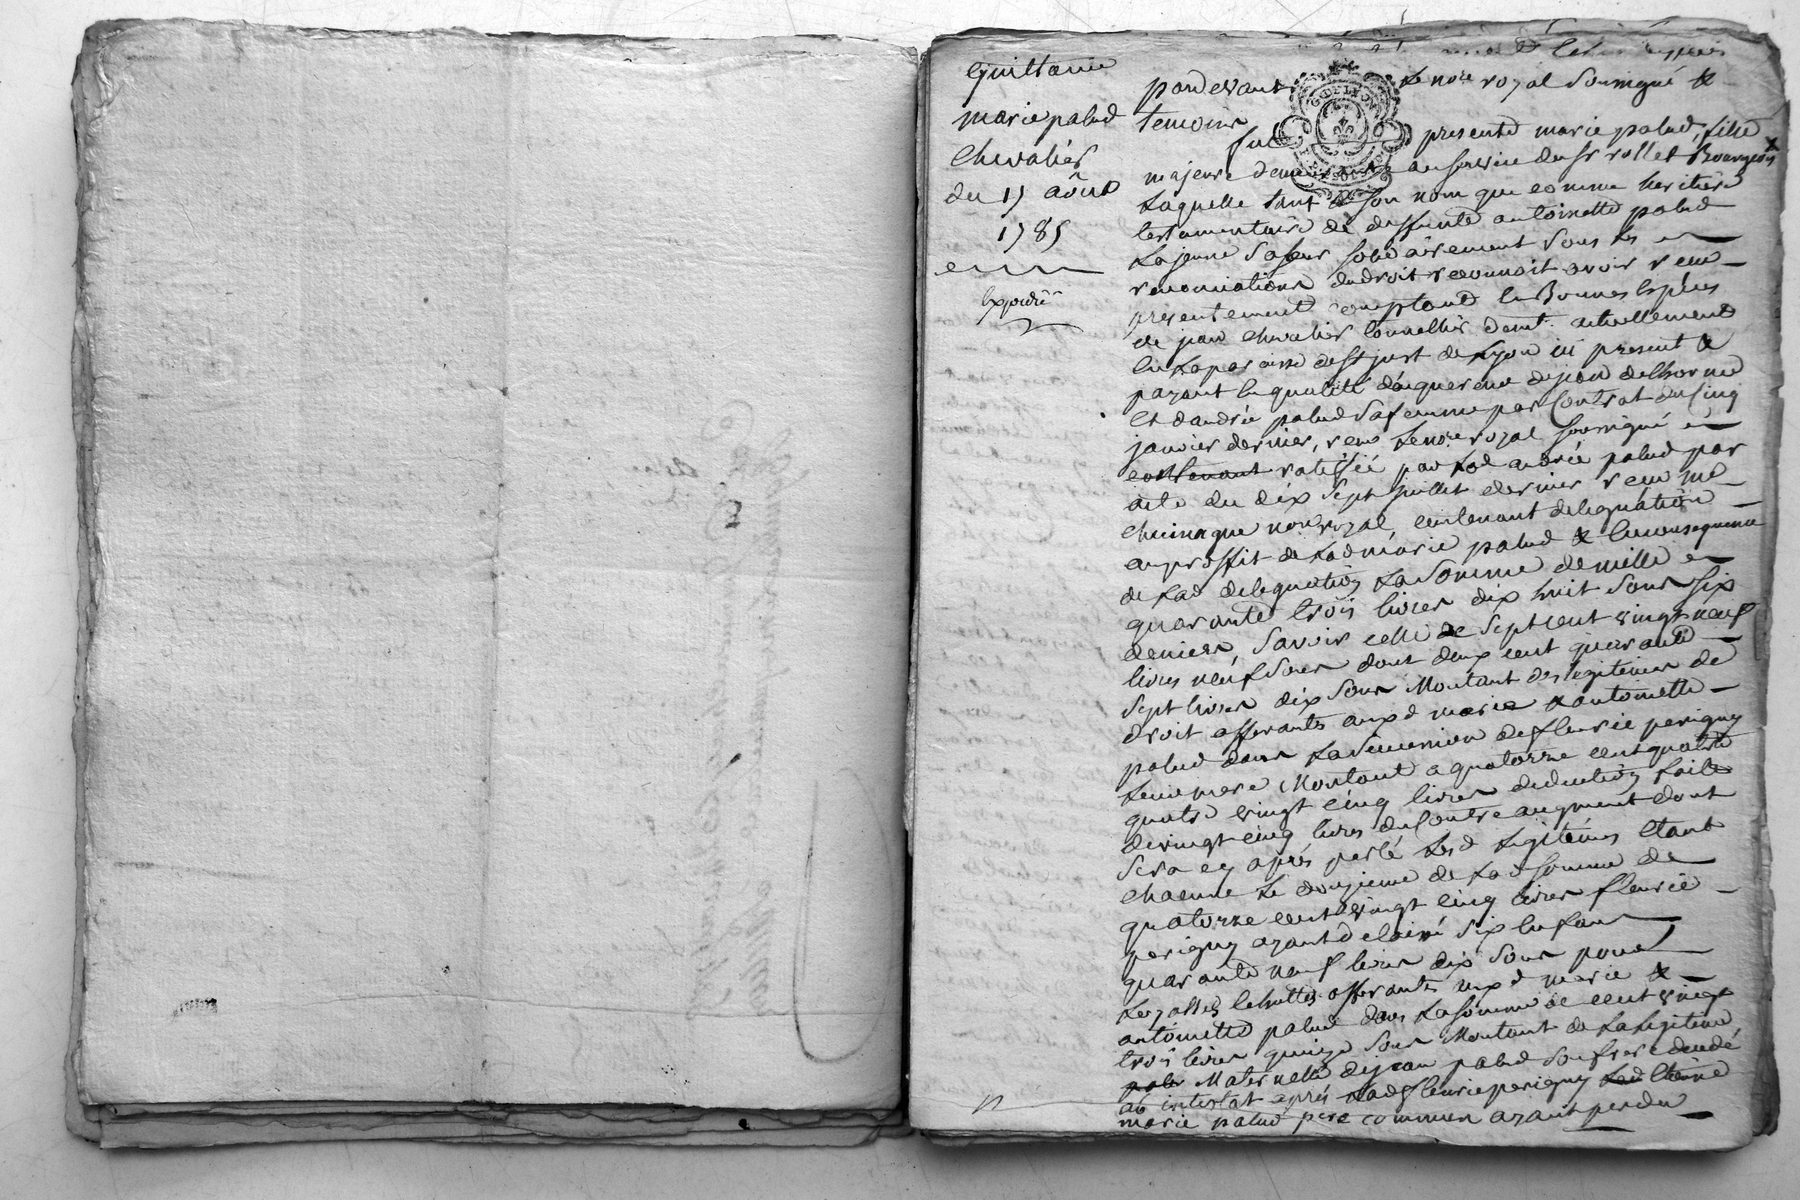 Quittance
marie palud
Chevalier
du 17 août
1785
Expedié
pardevant Le nore royal soussigné &
temoins
fut presente marie palud, fille
majeure demeurant au service du sr rollet Bourgeois
Laquelle tant de son nom que comme heritiere
testamentaire de deffunte antoinette palud
La jeune sa sœur solidairement sous les
renonciations de droit reconnoit avoir reçu
presentement comptant en Bonnes Especes
de jean chevalier tonnellier demt. actuellement
en La paroisse de st just de Lyon ici present &
payant en qualité d'acquereur de jean delhorme
et d'andrée palud sa femme par Contrat du cinq
janvier dernier, reçu Le nore royal soussigné
contenant ratiffié par Lad andrée palud par
acte du dix sept juillet dernier reçu me
nore royal, contenant delegation
au proffit de Lad marie palud & en consequence
de Lad delegation La somme de mille
quarante trois livres dix huit sous six
deniers, savoir celle de sept cent vingt neuf
livres neuf sous dont deux cent quarante
sept livres dix sous Montant des legitimes de
droit afferantes auxd marie & antoinette
palud dans La succession de fleurie perigny
Leur mere Montant a quatorze cent quatre
quatre vingt cinq livres deduction faite
de vingt cinq livres du contre augment dont
sera cy après parlé Lesd Legitimes etant
chacune Le douzieme de Lad somme de
quatorze cent vingt cinq livres fleurie
perigny ayant delaissé six enfans
quarante neuf livres dix sous pour
Les afferantes auxd marie &
antoinette palud dans La somme de cent vingt
trois livres quinze sous Montant de La legitime
Maternelle de jean palud son frere decedé
ab intestat après Lad fleurie perigny Led Etienne
marie palud pere commun ayant perdu